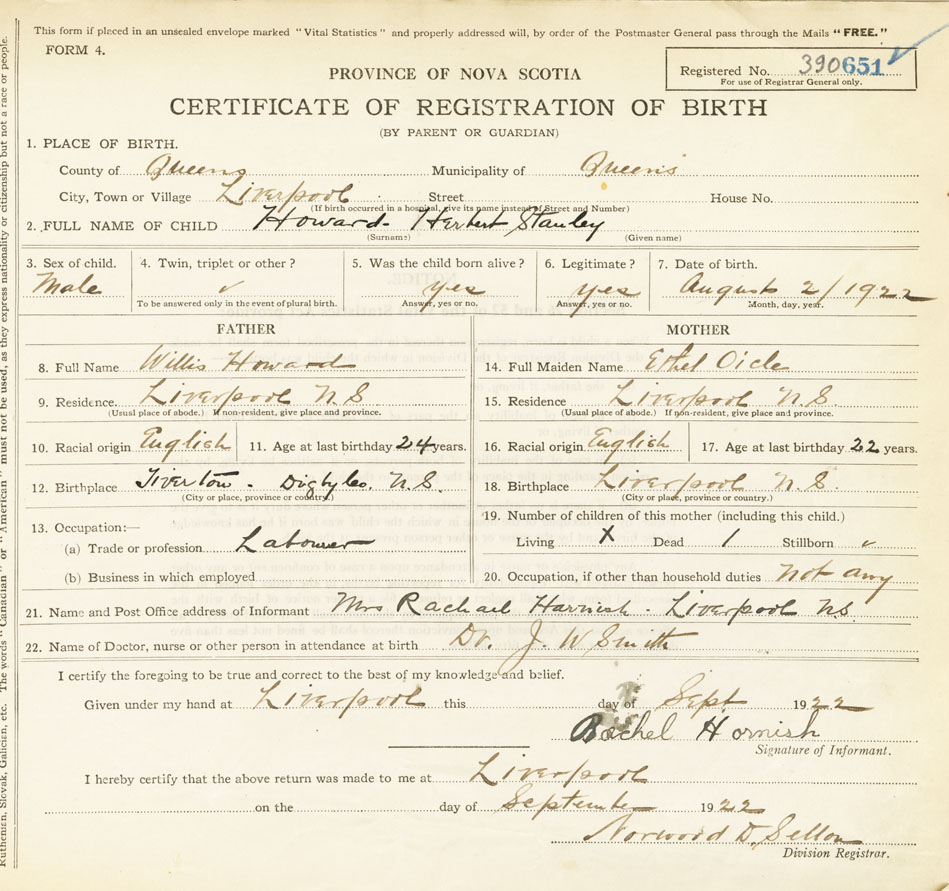 This form if placed in an unsealed envelope marked "Vital Statistics" and properly addressed will, by order of the Postmaster General pass through the Mails "FREE."
FORM 4.
PROVINCE OF NOVA SCOTIA
Registered No. 390651
For use of Registrar General only.
CERTIFICATE OF REGISTRATION OF BIRTH
(BY PARENT OR GUARDIAN)
1. PLACE OF BIRTH.
County of Queens Municipality of Queen's
City, Town or Village Liverpool Street House No.
(If birth occurred in a hospital, give its name instead of Street and Number)
2. FULL NAME OF CHILD Howard - Herbert Stanley
(Surname) (Given name)
3. Sex of child. 4. Twin, triplet or other? 5. Was the child born alive? 6. Legitimate? 7. Date of birth.
Male ✓ yes yes August 2/1922
To be answered only in the event of plural birth. Answer, yes or no. Answer, yes or no. Month, day, year.
FATHER MOTHER
8. Full Name Willis Howard 14. Full Maiden Name Ethel Oicle
9. Residence. Liverpool N S 15. Residence Liverpool N S
(Usual place of abode.) If non-resident, give place and province. (Usual place of abode.) If non-resident, give place and province.
10. Racial origin English 11. Age at last birthday 24 years. 16. Racial origin English 17. Age at last birthday 22 years.
12. Birthplace Tiverton - Digby Co. N. S. 18. Birthplace Liverpool N S.
(City or place, province or country.) (City or place, province or country.)
13. Occupation:— 19. Number of children of this mother (including this child.)
(a) Trade or profession Labourer Living X Dead 1 Stillborn ✓
(b) Business in which employed 20. Occupation, if other than household duties not any
21. Name and Post Office address of Informant Mrs Rachael Harnish - Liverpool NS
22. Name of Doctor, nurse or other person in attendance at birth Dr. J. W Smith
I certify the foregoing to be true and correct to the best of my knowledge and belief.
Given under my hand at Liverpool this day of Sept 1922
Rachel Hornish
Signature of Informant.
I hereby certify that the above return was made to me at Liverpool
on the day of September 1922
Norwood D. Sellon
Division Registrar.
Ruthenian, Slovak, Galician, etc. The words "Canadian" or "American" must not be used, as they express nationality or citizenship but not a race or people.